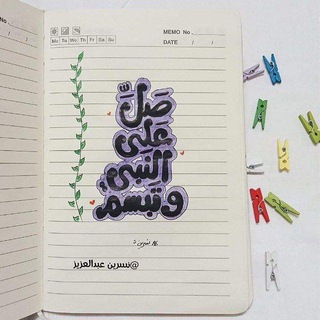 MEMO No.
Mo Tu We Th Fr Sa Su
DATE / /
صَلِّ
علىٰ
النبي
وتبسم
@نسرين عبدالعزيز